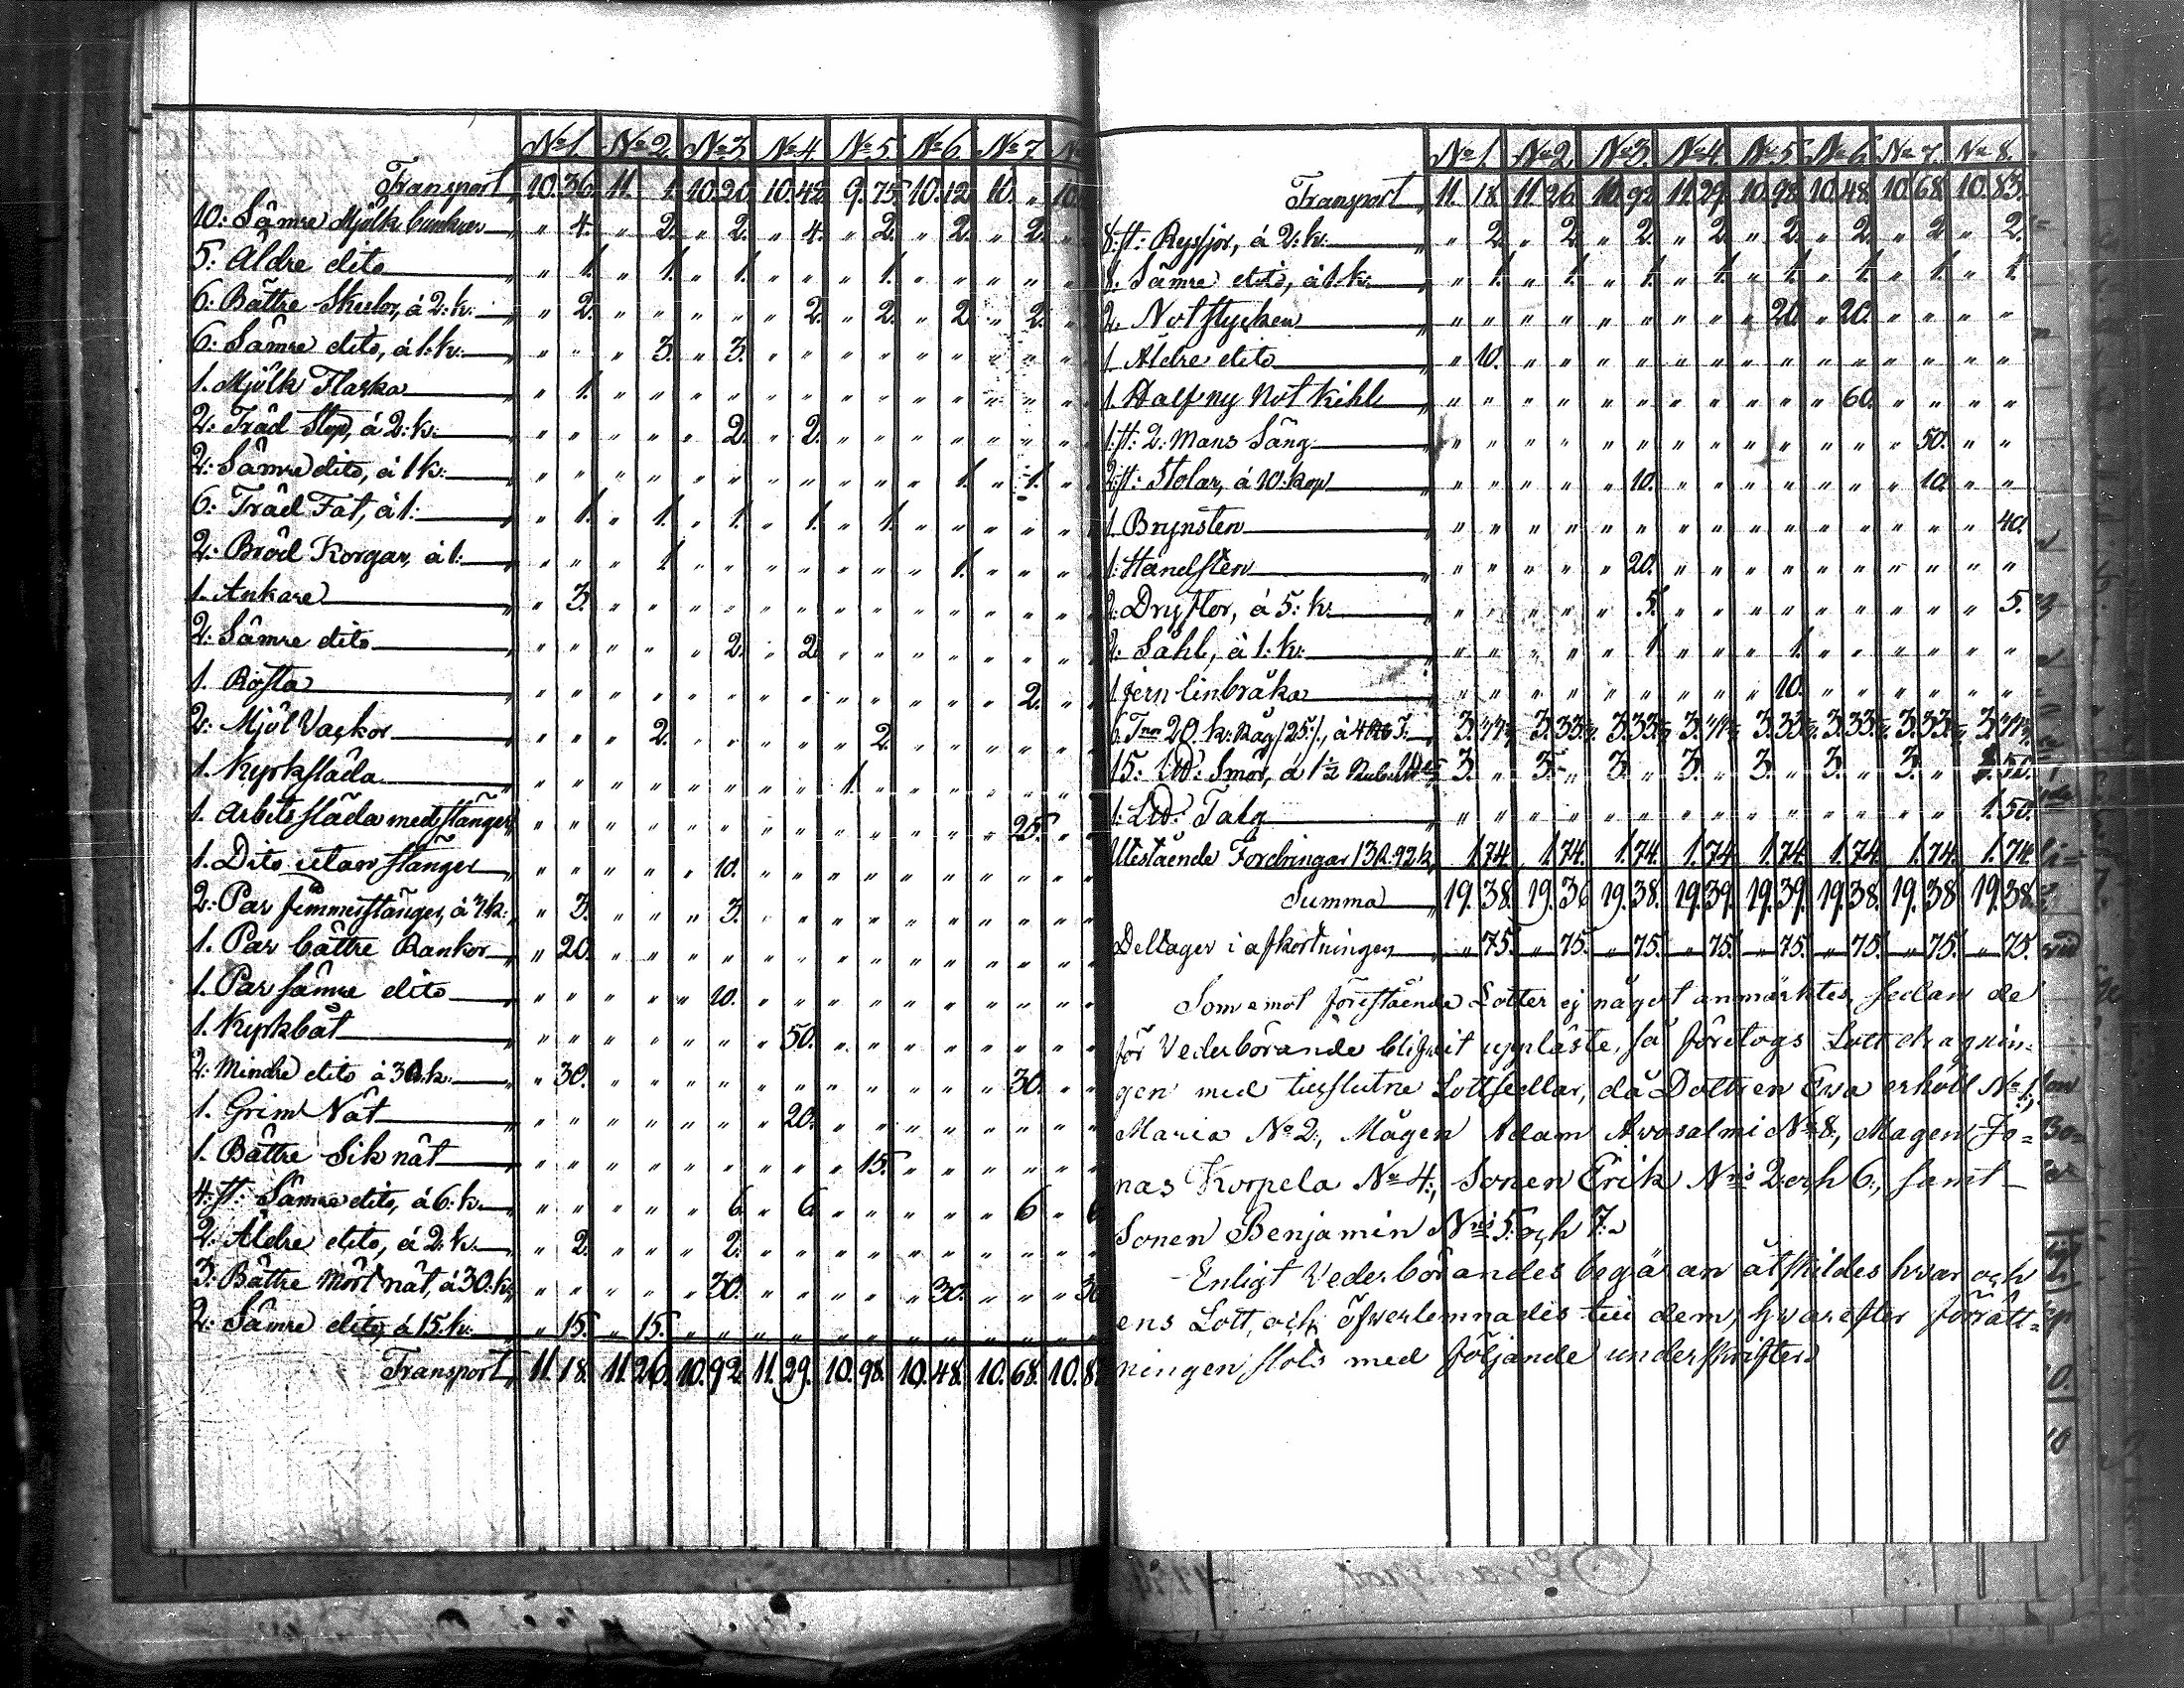 No 1. No 2. No 3. No 4. No 5. No 6. No 7.
Transport 10. 36. 11. 1. 10. 20. 10. 42. 9. 75. 10. 12. 10. „ 10.
10: Sämre Mjölk bunkar „ 4. „ 2. „ 2. „ 4. „ 2. „ 2. „ 2.
5: Äldre dito „ 1. „ 1. „ 1. „ „ „ 1. „ „ „ „
6: Bättre Skulor, á 2: k: „ 2. „ „ „ „ „ 2. „ 2. „ 2. „ 2.
6: Sämre dito, á 1: k: „ „ „ 3. „ 3. „ „ „ „ „ „ „ „
1. Mjölk Flaska „ 1. „ „ „ „ „ „ „ „ „ „ „ „
2: Träd Stop, á 2: k: „ „ „ „ „ 2. „ 2. „ „ „ „ „ „
2: Sämre dito, á 1 k: „ „ „ „ „ „ „ „ „ „ „ 1. „ 1.
6: Träd Fat, á 1: „ 1. „ 1. „ 1. „ 1. „ 1. „ „ „ „
2: Bröd Korgar, á 1: „ „ „ 1. „ „ „ „ „ „ „ 1. „ „
1. Ankare „ 3. „ „ „ „ „ „ „ „ „ „ „ „
2: Sämre dito „ „ „ „ „ 2. „ 2. „ „ „ „ „ „
1. Rösta „ „ „ „ „ „ „ „ „ „ „ „ „ 2.
2: Mjöl Vackor „ „ „ 2. „ „ „ „ „ 2. „ „ „ „
1. Kyrksläda „ „ „ „ „ „ „ „ 1. „ „ „ „ „
1. Arbets släda med stänger „ „ „ „ „ „ „ „ „ „ „ „ „ 25.
1. Dito utan stänger „ „ „ „ „ 10. „ „ „ „ „ „ „ „
2: Par fimmerstänger, á 3 k: „ 3. „ „ „ 3. „ „ „ „ „ „ „ „
1. Par bättre Rankor „ 20. „ „ „ „ „ „ „ „ „ „ „ „
1. Par sämre dito „ „ „ „ „ 10. „ „ „ „ „ „ „ „
1. Kyrkbåt „ „ „ „ „ „ „ 50. „ „ „ „ „ „
2: Mindre dito á 30. k: „ 30. „ „ „ „ „ „ „ „ „ „ „ 30.
1. Grim Nät „ „ „ „ „ „ „ 20. „ „ „ „ „ „
1. Bättre Sik nät „ „ „ „ „ „ „ „ „ 15. „ „ „ „
4: st: Sämre dito, á 6: k: „ „ „ „ „ 6. „ 6. „ „ „ „ „ 6 „ 6
2: Äldre dito, á 2: k: „ 2. „ „ „ 2. „ „ „ „ „ „ „ „
3: Bättre Mört nät, á 30: k: „ „ „ „ „ 30. „ „ „ „ „ 30. „ „ „ 30
2: Sämre dito á 15. k: „ 15. „ 15. „ „ „ „ „ „ „ „ „ „
Transport 11. 18. 11. 26. 10. 92. 11. 29. 10. 98. 10. 48. 10. 68. 10. 8
No 1. No 2. No 3. No 4. No 5. No 6. No 7. No 8.
Transport 11. 18. 11. 26. 10. 92. 11. 29. 10. 98. 10. 48. 10. 68. 10. 83.
8: st: Ryssjor, á 2: k: „ 2. „ 2. „ 2. „ 2. „ 2. „ 2. „ 2. „ 2.
8. Sämre dito, á 1: k: „ 1. „ 1. „ 1. „ 1. „ 1. „ 1. „ 1. „ 1.
2. Notstycken „ „ „ „ „ „ „ „ „ 20. „ 20. „ „ „ „
1. Äldre dito „ 10. „ „ „ „ „ „ „ „ „ „ „ „ „ „
1. Half ny Not kihl „ „ „ „ „ „ „ „ „ „ „ 60. „ „ „ „
1: st: 2: Mans Säng „ „ „ „ „ „ „ „ „ „ „ „ „ 50. „ „
2: st: Stolar, á 10: kop „ „ „ „ „ 10. „ „ „ „ „ „ „ 10. „ „
1. Brynsten „ „ „ „ „ „ „ „ „ „ „ „ „ „ „ 40.
1: Handsten „ „ „ „ „ 20. „ „ „ „ „ „ „ „ „ „
2: Dryftor, á 5: k: „ „ „ „ „ 5. „ „ „ „ „ „ „ „ „ 5.
2: Såhl, á 1: k: „ „ „ „ „ 1 „ „ „ 1. „ „ „ „ „ „
1 Jern linbråka „ „ „ „ „ „ „ „ „ 10. „ „ „ „ „ „
15: Smör, á 1½ Rub 3. „ 3. „ 3. „ 3. „ 3. „ 3. „ 3. „ 1. 50.
1: Ltd: Talg „ „ „ „ „ „ „ „ „ „ „ „ „ „ 1. 50.
Utestående Fordringar 13 R. 92 k. 1. 74. 1. 74. 1. 74. 1. 74. 1. 74. 1. 74. 1. 74. 1. 74.
Summa 19. 38. 19. 36 19. 38. 19. 39. 19. 39. 19. 38. 19. 38 19. 38.
Deltager i afkortningen „ 75. „ 75. „ 75. „ 75. „ 75. „ 75. „ 75. „ 75.
Som emot förestående Lotter ej något anmärktes, sedan de
för Vederbörande blifvit uppläste, så företogs Lottdragnin=
gen med tillslutne Lottsedlar, då Dottren Eva erhöll No 1.,
Maria No 2:, Mågen Adam Avasalmi No 8., Mågen Jo=
nas Korpela No 4:, Sonen Erik No:s 2: och 6:, samt
Sonen Benjamin No:s 5: och 7:
Enligt Vederbörandes begäran åtskildes hvar och
ens Lott, och öfverlemnades till dem, hvarefter förrätt=
ningen slöts med följande underskrifter